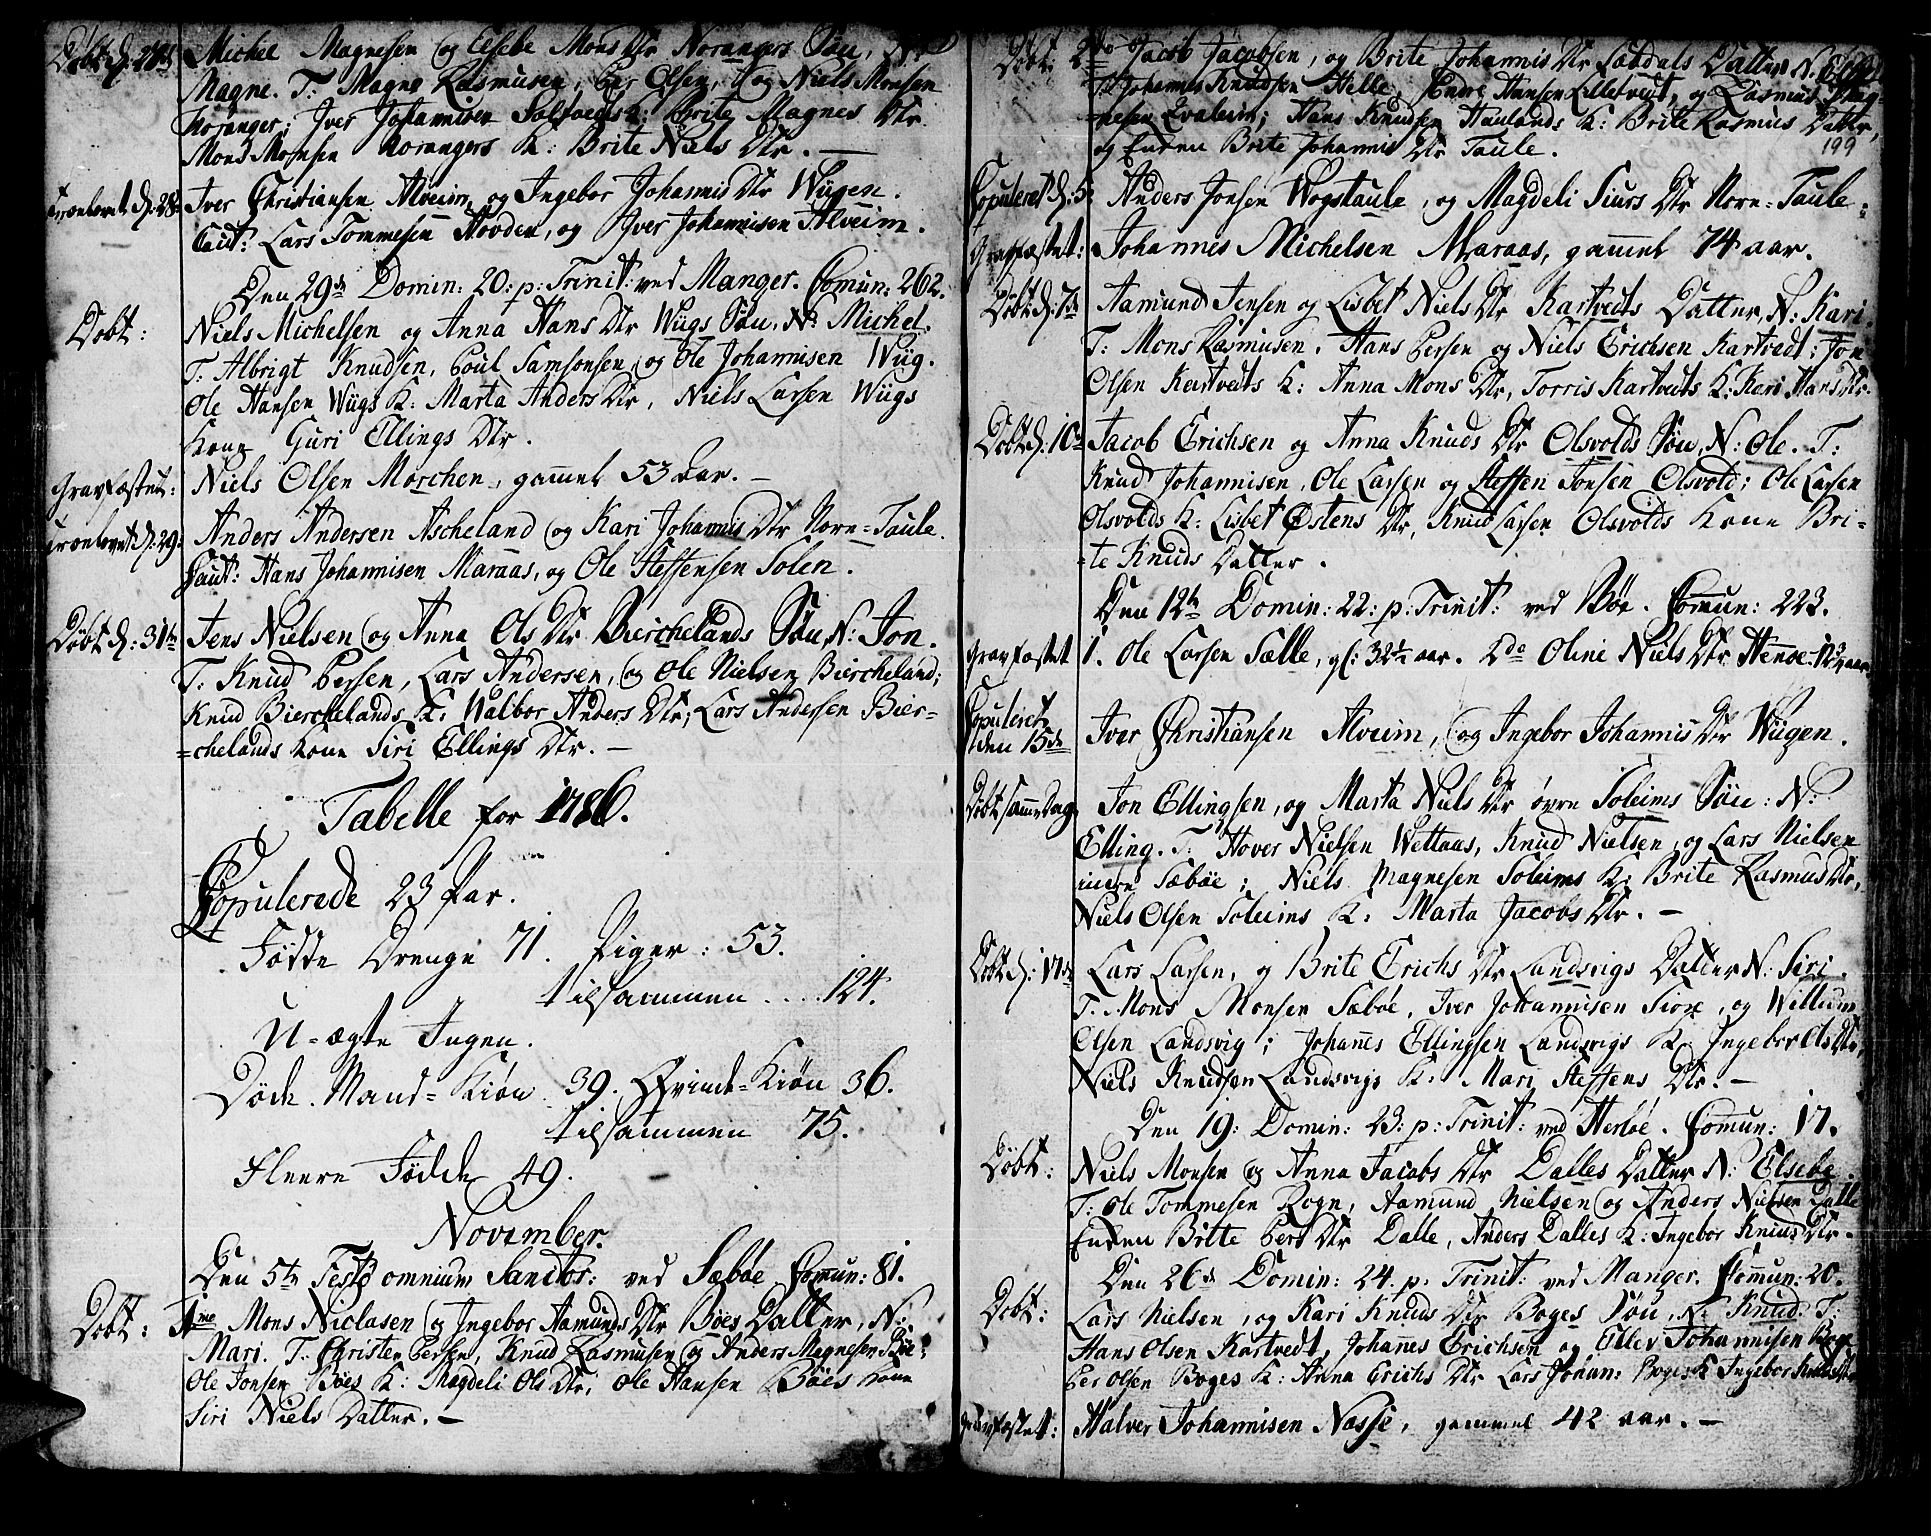 Døbt d: 28de Michel Magnesen og Elsebe Mons Dtr Norangers Søn, N:
Magne. T: Magne Rasmusen, Per Olsen, og Niels Monsen
Noranger; Iver Johannisen K: Brite Magnes Dtr.
Mons Monsen Norangers K: Brite Niels Dtr. —
Trolovet d: 28de Iver Christiansen Alveim, og Ingebor Johannis Dtr Wügen.
Caut: Lars Tommesen Hovden, og Iver Johannisen Alveim.
Den 29de Domin: 20: p: Trinit: ved Manger. Comun: 262.
Døbt: Niels Michelsen og Anna Hans Dtr Wügs Søn, N: Michel.
T: Albrigt Knudsen, Poul Samsonsen, og Ole Johannisen Wüg.
Ole Hansen Wügs K: Marta Anders Dtr, Niels Larsen Wügs
Kone Guri Ellings Dtr.
Gravfæstet: Niels Olsen Morchen, gamel 53 aar. —
Tronlovet d: 29: Anders Andersen Ascheland og Kari Johannis Dtr Norn=Taule.
Caut: Hans Johannisen Maraas, og Ole Steffensen Solen.
Døbt d: 31te Jens Nielsen og Anna Ols Dtr Bierchelands Søn, N: Jon.
T: Knud Persen, Lars Andersen, og Ole Nielsen Biercheland;
Knud Bierchelands K: Walbor Anders Dtr; Lars Andersen Bier=
=chelands Kone Siri Ellings Dtr. —
Tabelle for 1786.
Copulerede 23 Par.
Fødde Drenge 71. Piger: 53.
tilsammen .... 124.
U=ægte Ingen.
Døde. Mand=Kiøn 39. Qvinde=Kiøn 36.
tilsammen 75.
Fleere Fødde 49.
November.
Den 5te Festo omnium Sanctor: ved Sæbøe Comun: 81.
Døbt: 1mo Mons Niclasen og Ingebor Aamunds Dtr Bøes Datter, N:
Mari. T: Christen Persen, Knud Rasmusen og Anders Magnesen Bøe;
Ole Jonsen Bøes K: Magdeli Ols Dtr, Ole Hansen Bøes Kone
Siri Niels Datter. —
Døbt: 2do Jacob Jacobsen, og Brite Johannis Dtr Datter N:
T: Johannes Knudsen Helle, Hansen Lilletvedt, og Rasmus Mag=
=nesen Evaleim; Hans Knudsen Haulands K: Brite Rasmus Datter,
og Enken Brite Johannis Dtr Taule.
199
Copuleret d: 5 Anders Jonsen Wogstaule, og Magdeli Siurs Dtr Norn=Taule.
Gravfæstet: Johannes Michelsen Maraas, gamel 74 aar.
Døbt d: 7de Aamund Jensen og Lisbet Niels Dtr Kartvedts Datter, N: Kari.
T: Mons Rasmusen, Hans Persen og Niels Erichsen Kartvedt; Jon
Olsen Kartvedts K: Anna Mons Dtr, Torris Kartvedts K: Kari Hans Dtr.
Døbt d: 10de Jacob Erichsen og Anna Knuds Dtr Olsvolds Søn, N: Ole. T:
Knud Johannisen, Ole Larsen og Steffen Jonsen Olsvold; Ole Larsen
Olsvolds K: Lisbet Østens Dtr, Knud Larsen Olsvolds Kone Bri=
=te Knuds Datter.
Den 12te Domin: 22: p: Trinit: ved Bøe. Comun: 223.
Gravfæstet 1. Ole Larsen Sælle, gl: 32½ aar. 2do Oline Niels Dtr Henøe
Copuleret den 15de Iver Christiansen Alveim, og Ingebor Johannis Dtr Wügen.
Døbt samme Dag Jon Ellingsen, og Marta Niels Dtr øvre Soleims Søn: N:
Elling. T: Hover Nielsen Wettaas, Knud Nielsen, og Lars Nielsen
indre Sæbøe; Niels Magnesen Soleims K: Brite Rasmus Dtr,
Niels Olsen Soleims K: Marta Jacobs Dtr. —
Døbt d: 17de Lars Larsen, og Brite Erichs Dtr Landsvigs Datter N: Siri.
T: Mons Monsen Sæbøe, Iver Johannisen, og Willum
Olsen Landsvig; Johannes Ellingsen Landsvigs K: Ingebor Ols Dtr,
Niels Knudsen Landsvigs K: Mari Steffens Dtr. —
Den 19: Domin: 23: p: Trinit: ved Herløe. Comun: 17.
Døbt: Niels Monsen og Anna Jacobs Dtr Dalles Datter N: Elsebe.
T: Ole Tommesen Rogn, Aamund Nielsen og Anders Nielsen Dalle
Enken Britte Pers Dtr Dalle, Anders Dalles K: Ingebor Knuds Dtr.
Den 26de Domin: 24. p: Trinit: ved Manger. Comun: 20.
Døbt: Lars Nielsen, og Kari Knuds Dtr Boges Søn, N: Knud. T:
Hans Olsen Kartvedt, Johannes Erichsen og Ellev Johannisen Boge
Per Olsen Boges K: Anna Erichs Dtr Lars Johan: Boges K Ingebor Knuds Dtr
Gravfæstet: Halver Johannisen Næsse, gammel 42 aar. —